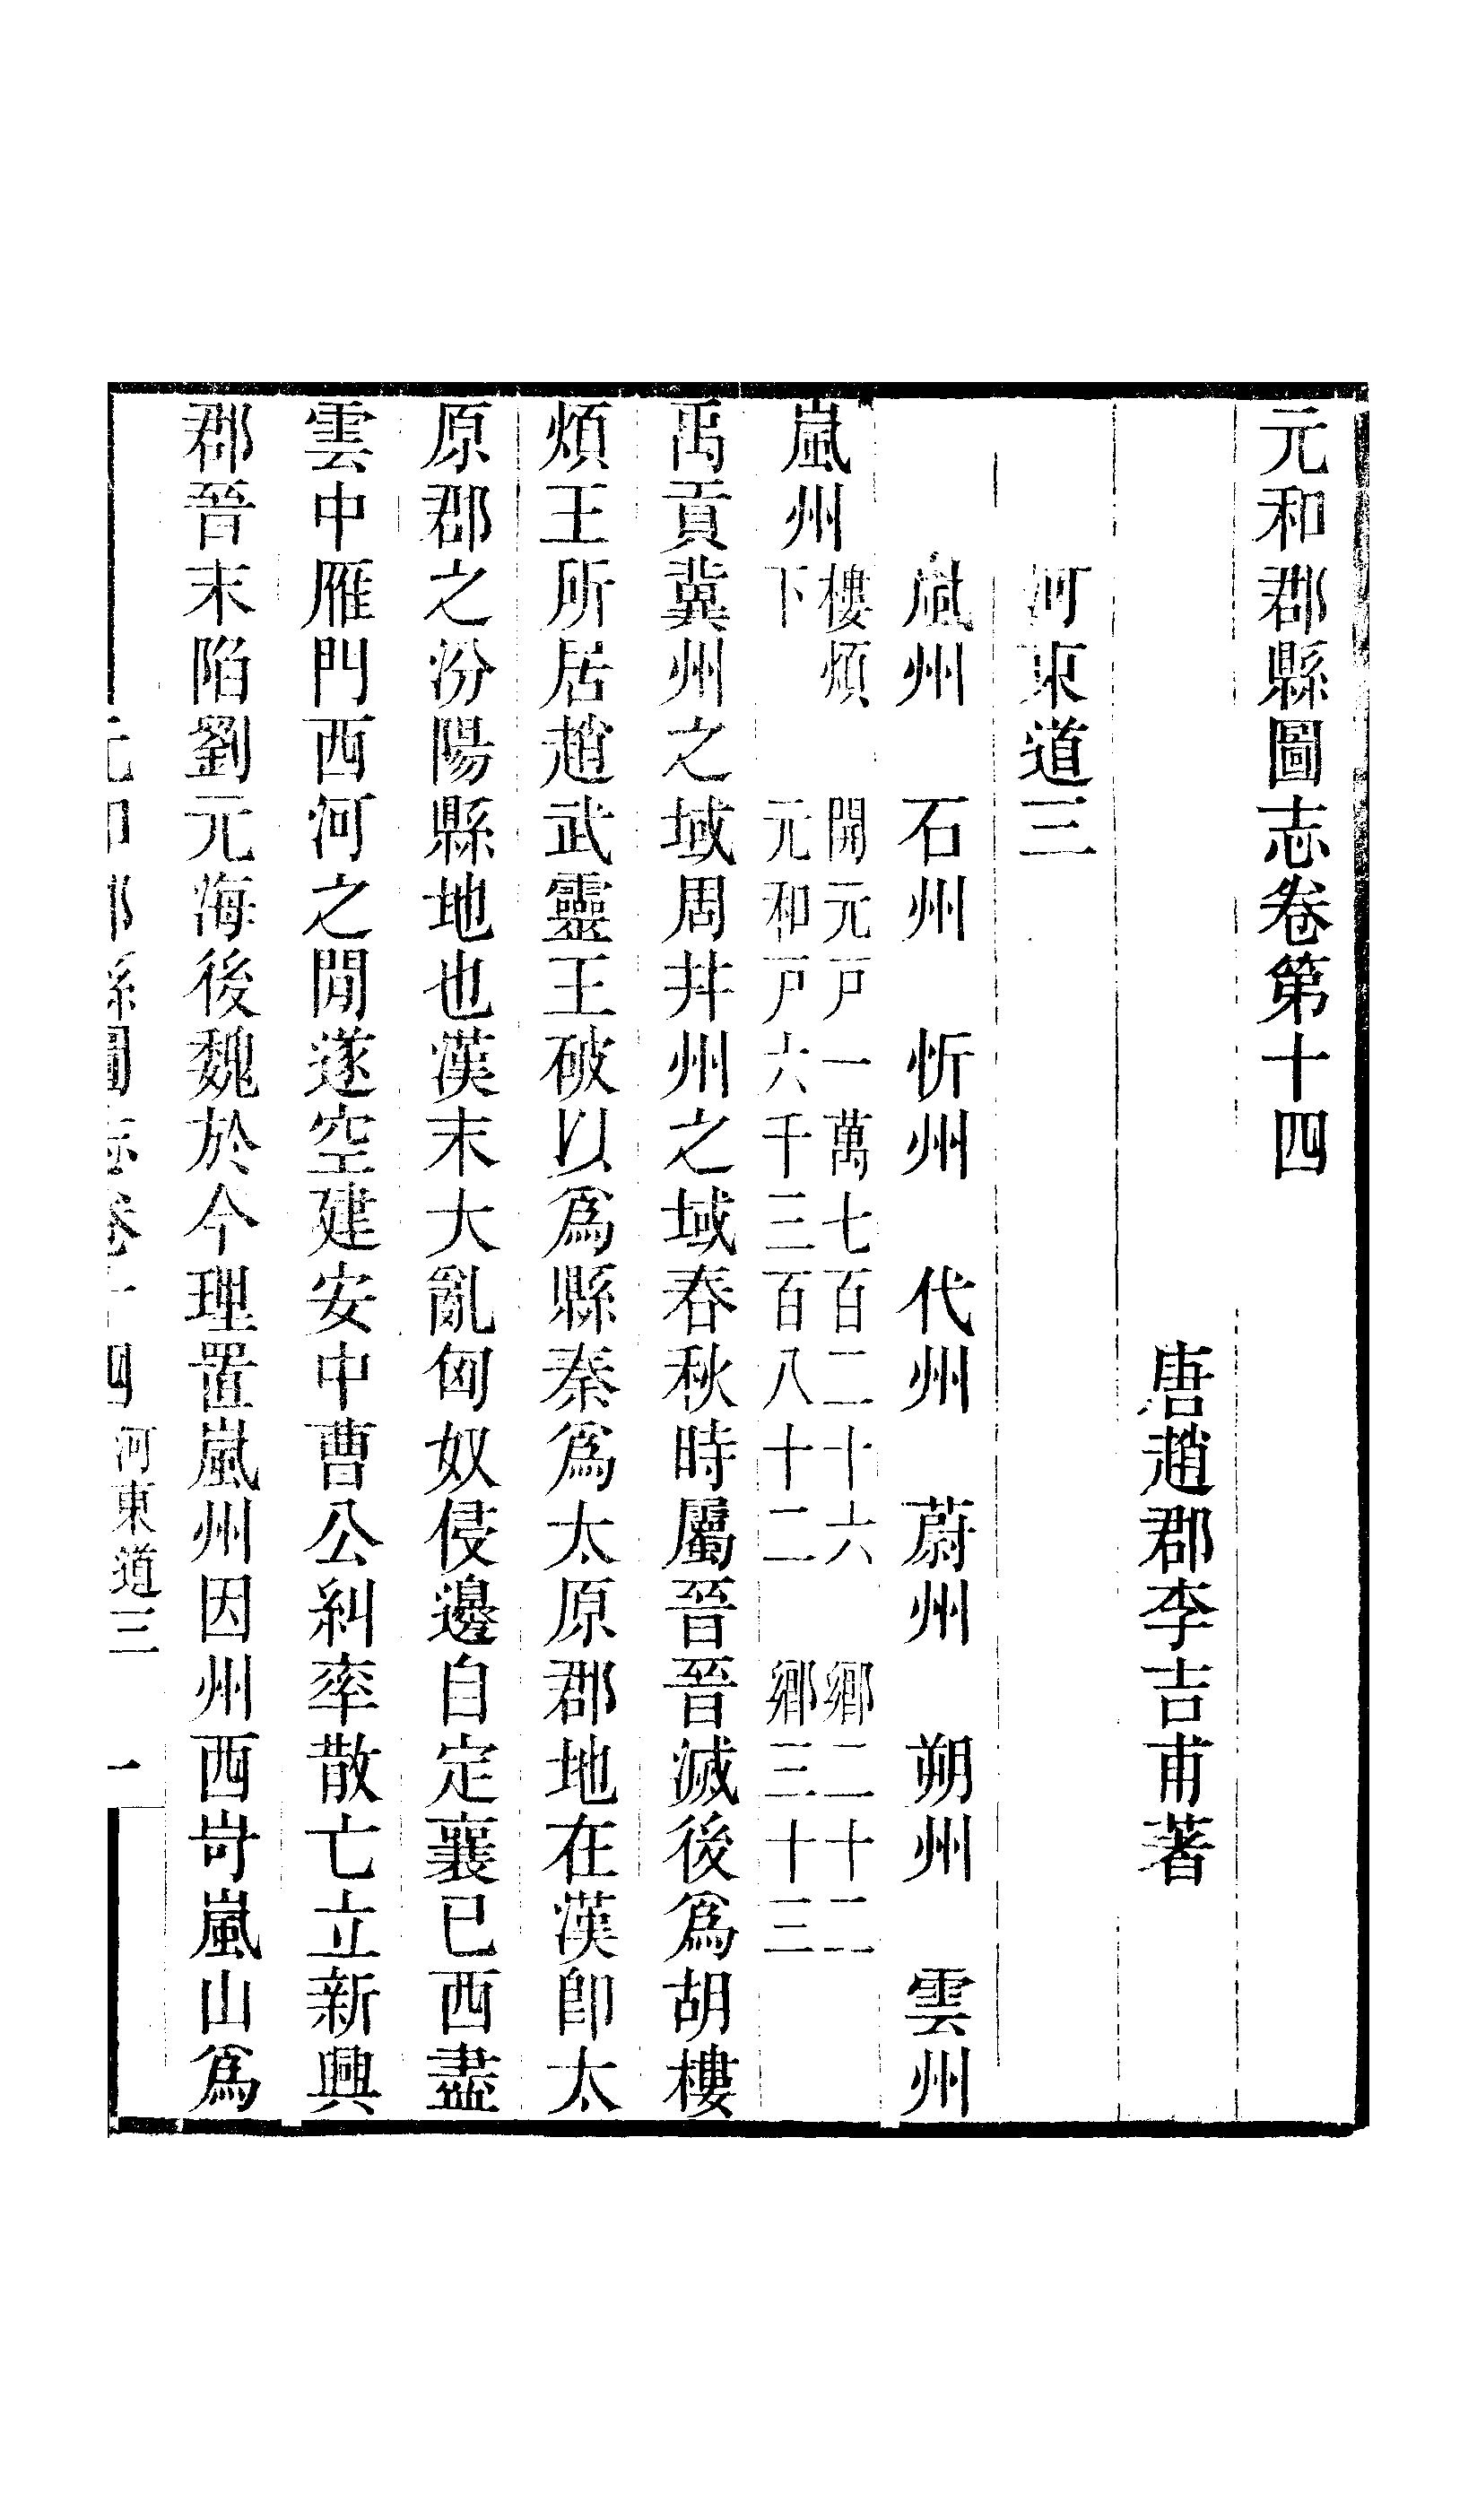 元和郡縣圖志卷第十四
唐趙郡李吉甫著
河東道三
嵐州　石州　忻州　代州　蔚州　朔州　雲州
嵐州
樓煩　開元戸一萬七百二十六　鄉二十二
下　元和戸六千三百八十二　鄉三十三
禹貢冀州之域周幷州之域春秋時屬晉晉滅後爲胡樓
煩王所居趙武靈王破以爲縣秦爲太原郡地在漢卽太
原郡之汾陽縣地也漢末大亂匈奴侵邊自定襄已西盡
雲中雁門西河之閒遂空建安中曹公糾率散亡立新興
郡晉末陷劉元海後魏於今理置嵐州因州西岢嵐山爲
元和郡縣圖志卷十四　河東道三　一